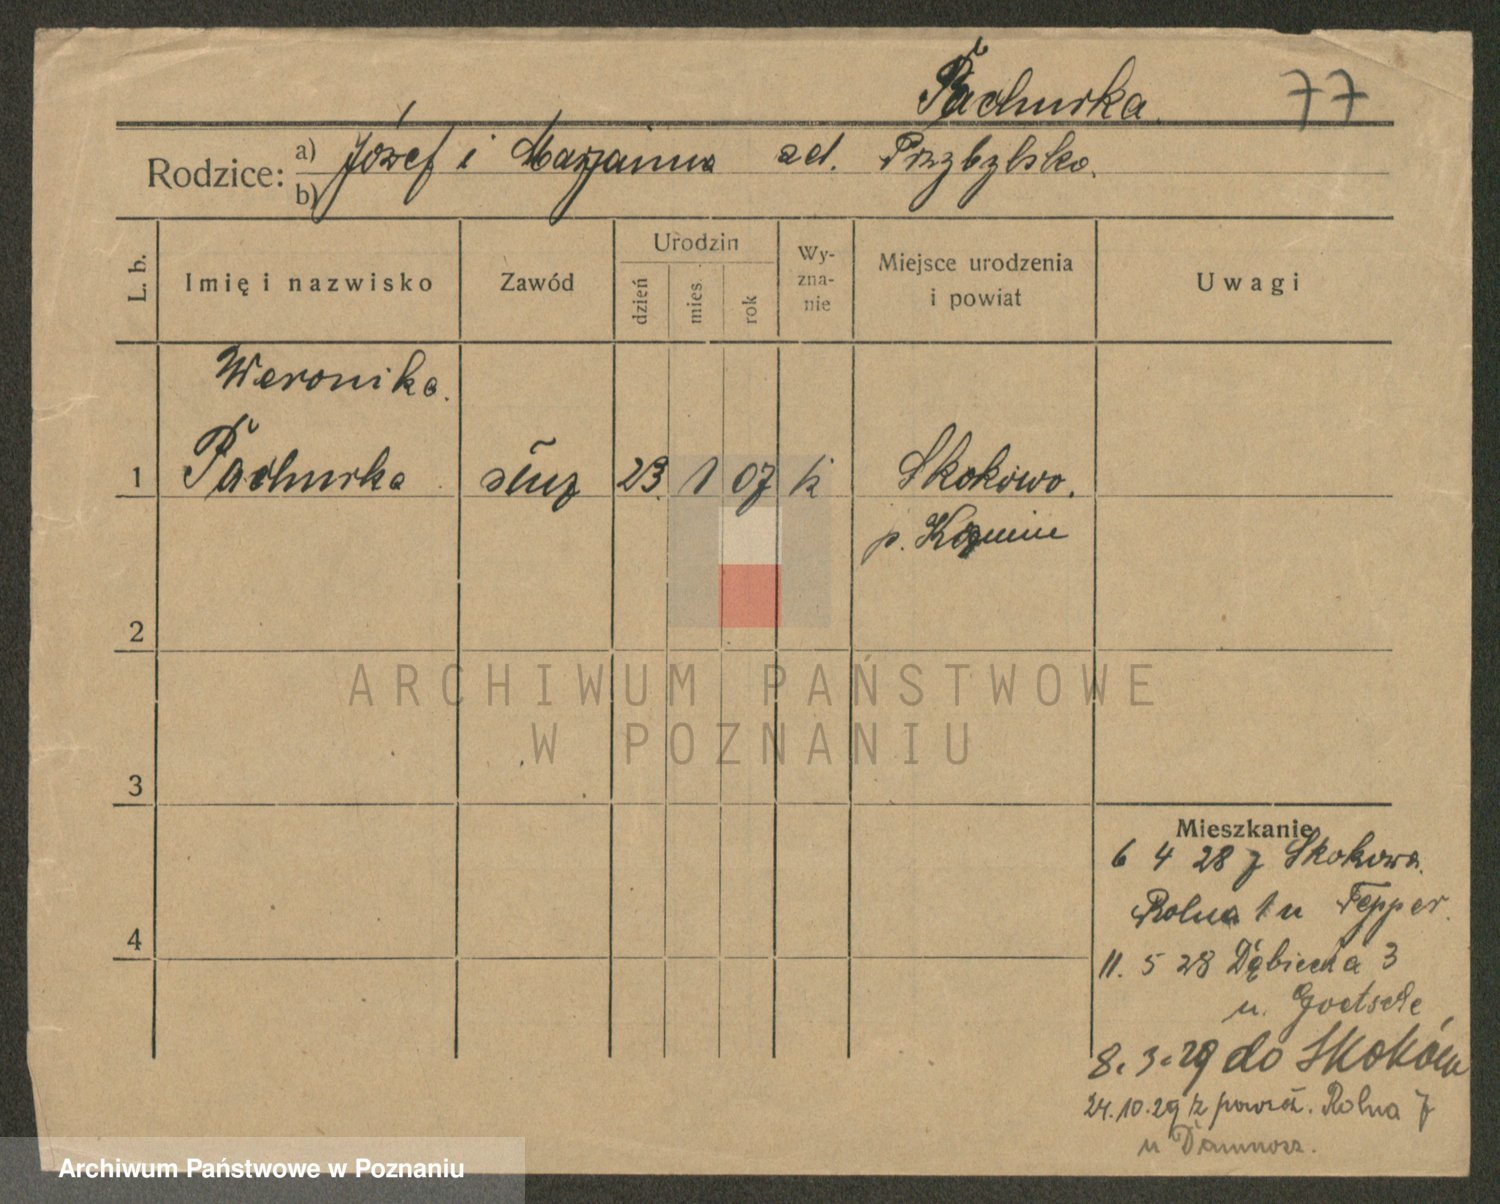 Pachurka. 77
Rodzice: a) Józef i Marjanna zd. Przybylska.
b)
L. b.
Imię i nazwisko
Zawód
Urodzin
dzień
mies.
rok
Wy-
zna-
nie
Miejsce urodzenia
i powiat
Uwagi
Weronika.
1 Pachurka służ 23. 1 07 k Skokowo.
p. Koźmin
2
3
4
Mieszkanie
6 4 28 z Skokowa.
Rolna 1 u Tepper.
11. 5 28 Dąbiecka 3
u. Goetsche
8. 3. 29 do Skoków
24. 10. 29 z powrót. Rolna 7
u
ARCHIWUM PAŃSTWOWE
W POZNANIU
Archiwum Państwowe w Poznaniu